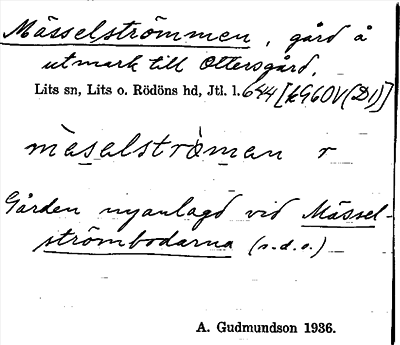 Mässelströmmen, gård å
utmark till Ottersgård,
Lits sn, Lits o. Rödöns hd, Jtl. l.
mäselstrȧman r
Gården nyanlagd vid Mässel-
strömbodarna (s.d.o.)
A. Gudmundson 1936.